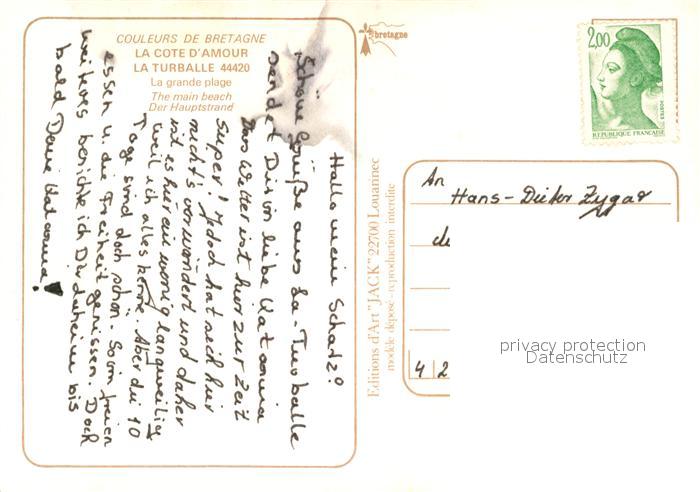 COULEURS DE BRETAGNE
LA COTE D'AMOUR
LA TURBALLE 44420
La grande plage
The main beach
Der Hauptstrand
bretagne
2,00
POSTES
REPUBLIQUE FRANCAISE
Hallo mein Schatz!
Schöne Grüße aus La-Turballe
sendet Dir von liebe Katarina
Das Wetter ist hier zur Zeit
super! Jedoch hat sich hier
nichts verändert und daher
ist es hier ein wenig langweilig
weil ich alles kenne. Aber die 10
Tage sind doch schön. So im freien
essen u. die Freiheit genießen. Doch
weiteres berichte ich Dir daheim bis
bald Deine Katarina!
Editions d'Art "JACK" 22700 Louannec
modèle déposé - reproduction interdite
An
Hans-Dieter Zygar
d
4 2
privacy protection
Datenschutz